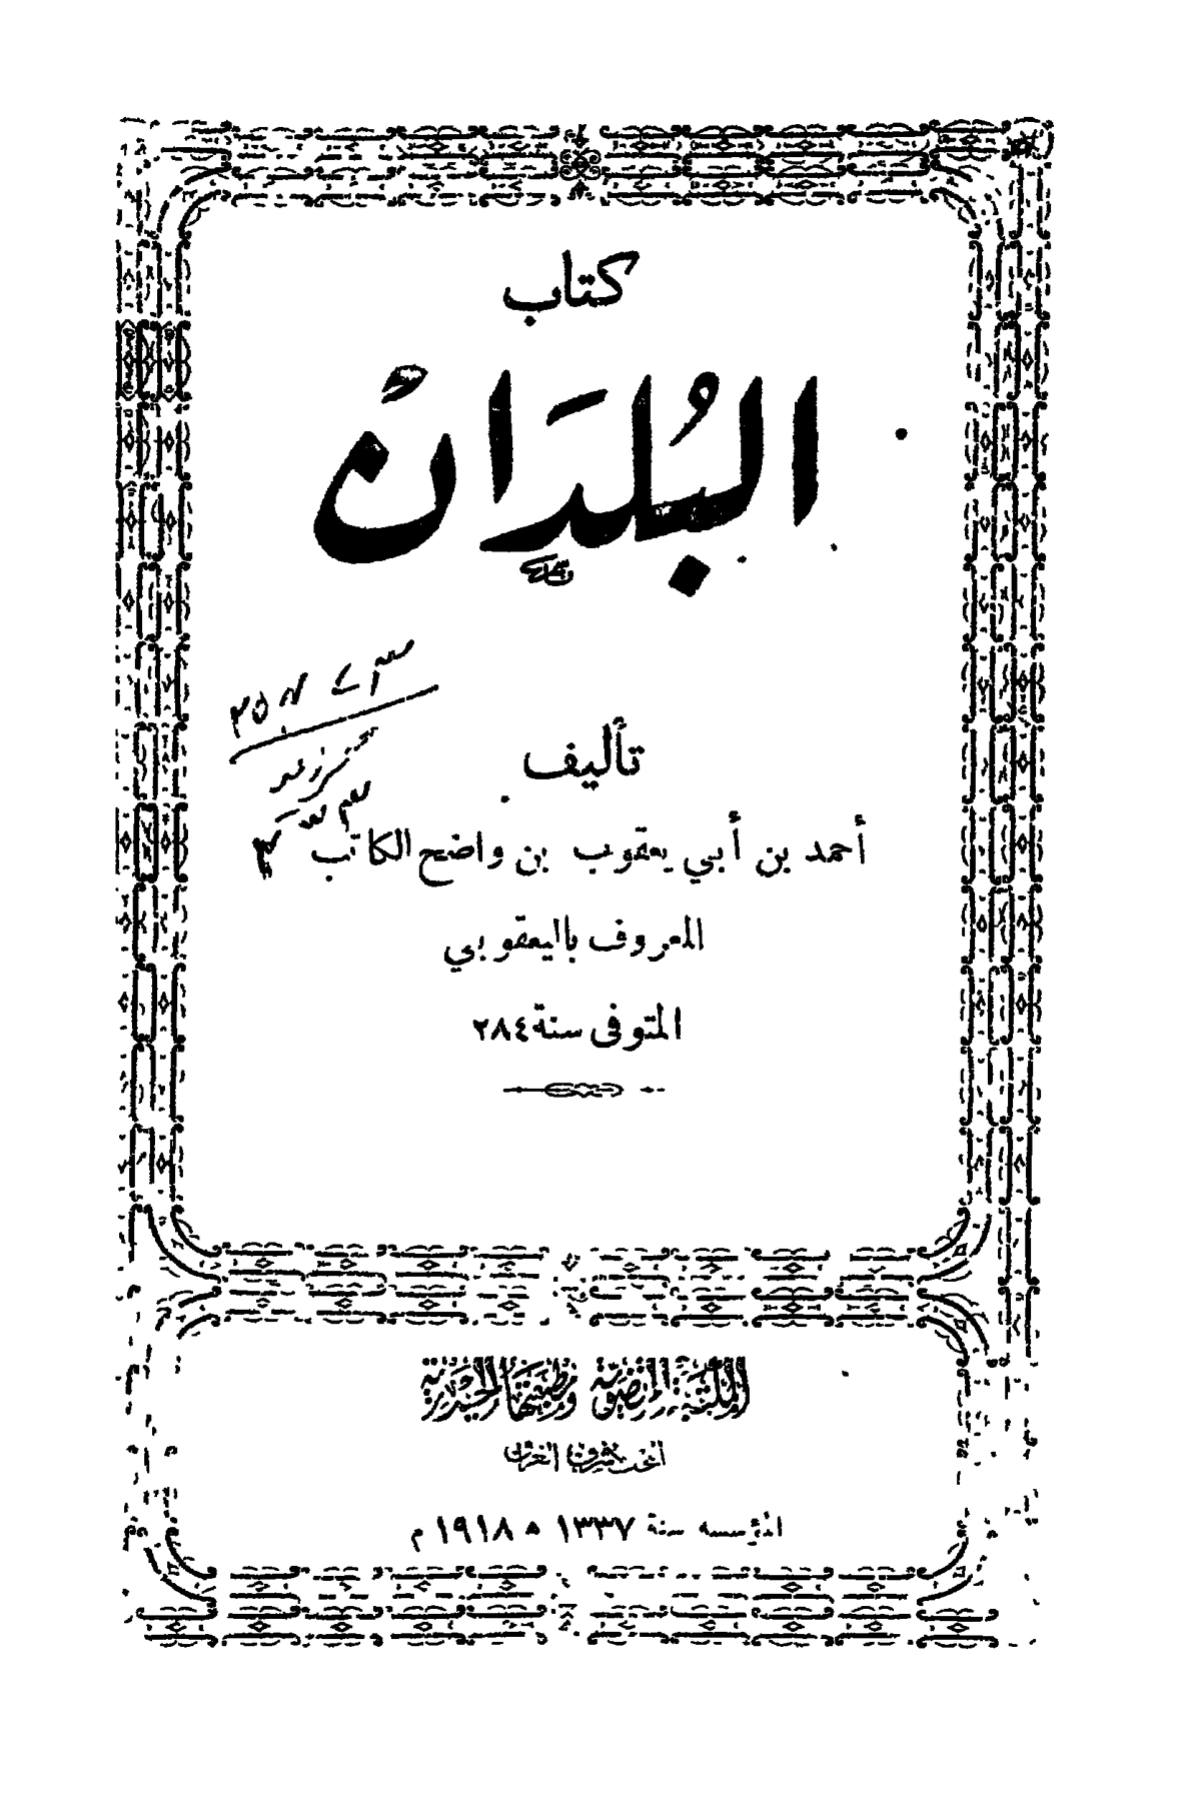 كتاب
البُلدَانْ
تأليف
أحمد بن أبي يعقوب بن واضح الكاتب
المعروف باليعقوبي
المتوفى سنة ٢٨٤
المكتبة المرتضوية ومطبعتها الحيدرية
النجف
المؤسسه سنة ١٣٣٧ ه ١٩١٨ م